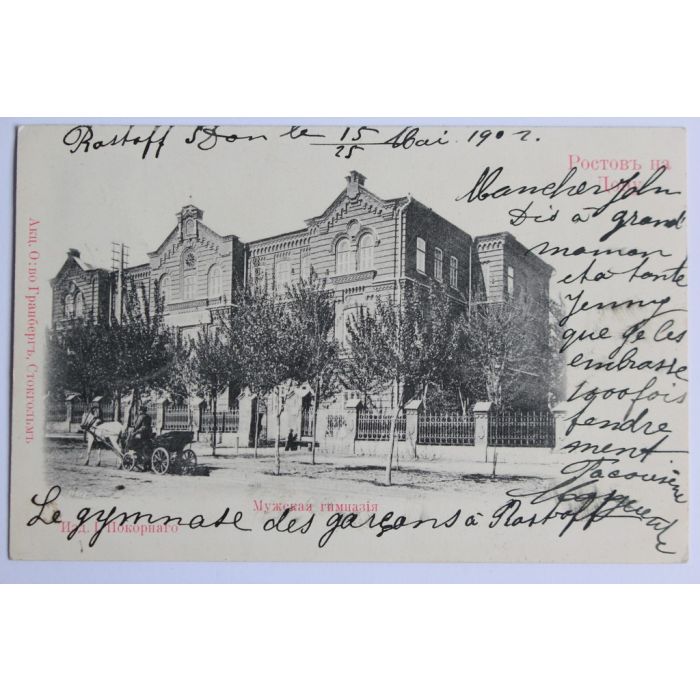 Rostoff s Don le 15/25 Mai 1902.
Ростовъ на
Дону
Mon cher John
Dis à grand
maman
et à tante
Jenny
que je les
embrasse
1000 fois
tendre
ment
Акц. О:во Гранбергъ, Стокгольмъ.
Мужская гимназія
Изд. І. Покорнаго
Le gymnase des garçons à Rostoff